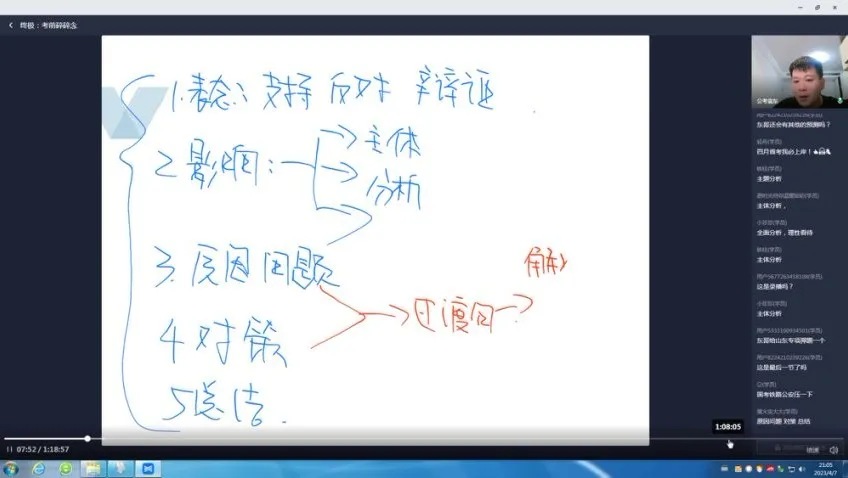 终极：考前碎碎念
1.表态：支持 反对 辩证
2 影响：主体
分析
3.原因 问题
解
过渡句
4 对策
5总结.
公考袁东
东哥还会有其他的预测吗？
四月省考我必上岸！
主题分析
主体分析，
全面分析，理性看待
主体分析
这是录播吗？
主体分析
东哥给山东专项押题一个
这是最后一节了吗
国考铁路公安压一下
原因问题 对策 总结
1:08:05
07:52 / 1:18:57
倍速
21:05
2023/4/7